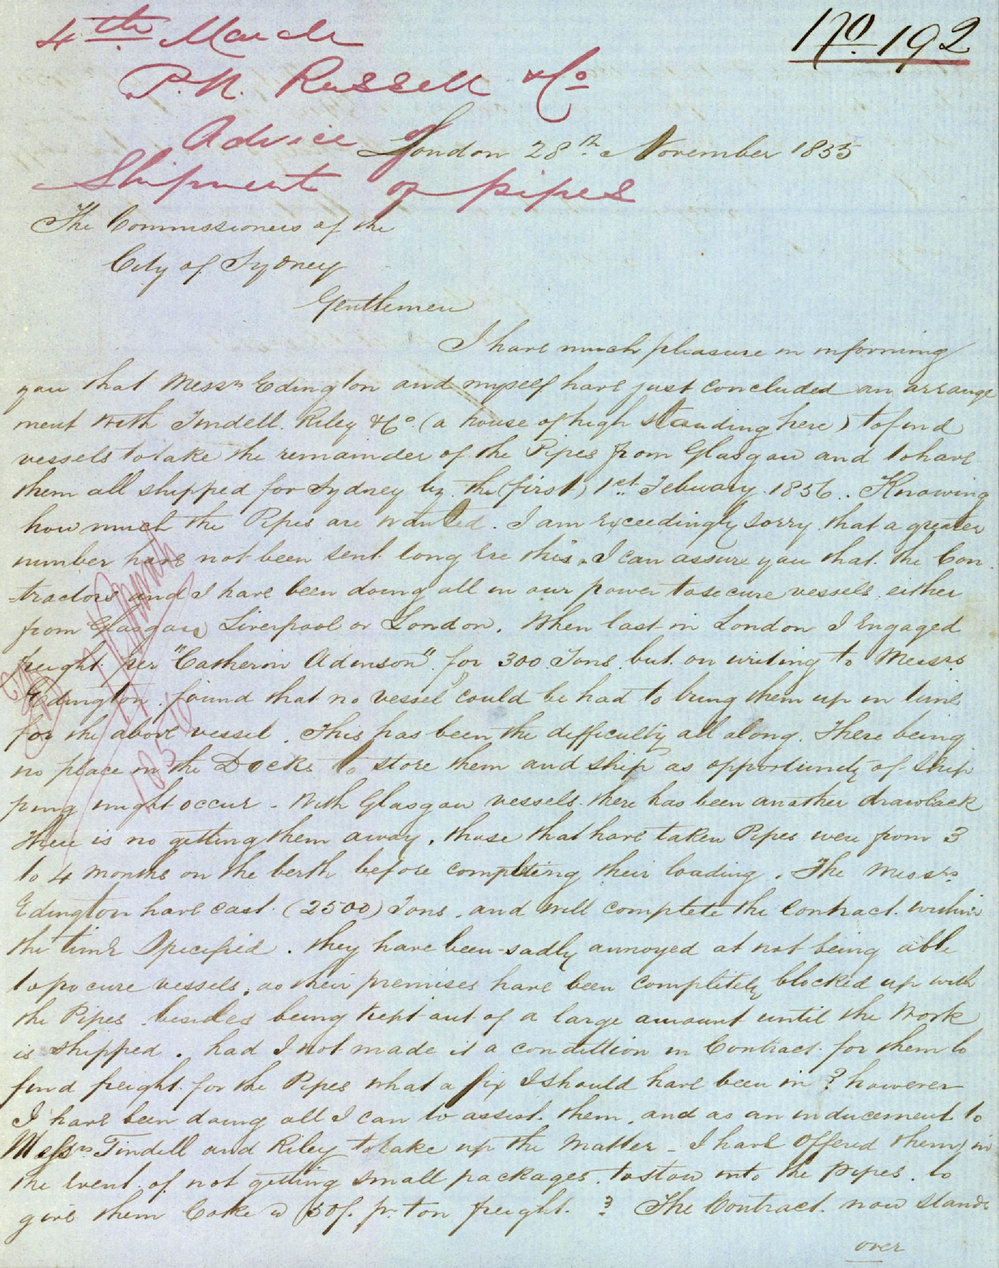 No. 192
4th March
P. N. Russell & Co
Advice of
London 28th November 1855
Shipment of pipes
The Commissioners of the
City of Sydney
Gentlemen
I have much pleasure in informing
you that Messrs Edington and myself have just concluded an arrange
ment with Tindell Riley & Co (a house of high standing here) to find
vessels to take the remainder of the Pipes from Glasgow and to have
them all shipped for Sydney by the (first) 1st February 1856. Knowing
how much the Pipes are wanted. I am Exceedingly sorry that a greater
number have not been sent long Ere this. I can assure you that the Con
-tractors and I have been doing all in our power to secure vessels either
from Glasgow, Liverpool or London. When last in London I Engaged
freight per "Catherin Adamson", for 300 Tons but on writing to Messrs
Edington, found that no vessel could be had to bring them up in time
for the above vessel. This has been the difficulty all along. There being
no place in the Docks to store them and ship as opportunity of Ship
ping might occur - With Glasgow vessels there has been another drawback
There is no getting them away, those that have taken Pipes were from 3
to 4 months on the berth before completing their loading. The Messrs
Edington have cast (2500) Tons, and will complete the Contract within
the time Specified. they have been sadly annoyed at not being able
to procure vessels, as their premises have been completely blocked up with
the Pipes besides being kept out of a large amount until the Work
is shipped. had I not made it a condittion in Contract for them to
find freight for the Pipes what a fix I should have been in? however
I have been doing all I can to assist them, and as an inducement to
Messrs Tindell and Riley to take up the matter - I have Offered them in
the Event of not getting small packages to stow into the pipes. to
give them Coke @ 50/. pr. ton freight. ? The Contract now stands
over